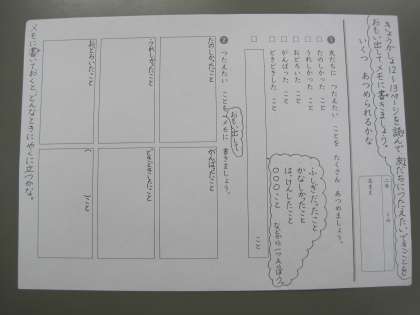 きょうかしょ12～13ページを読んで、友だちにつたえたいできごとを
おもい出して、メモに書きましょう。
いくつ あつめられるかな
二年 くみ
なまえ
❶ 友だちに つたえたい ことを たくさん あつめましょう。
□ たのしかった こと
□ うれしかった こと
□ おどろいた こと
□ がんばった こと
□ どきどきした こと
□ こと
ふしぎだったこと
かなしかったこと
はっけんしたこと
○○○こと
❷ つたえたい ことを おもい出して メモに 書きましょう。
たのしかったこと
うれしかったこと
おどろいたこと
がんばったこと
どきどきしたこと
（ ）こと
メモに書いておくと、どんなときにやくに立つかな。